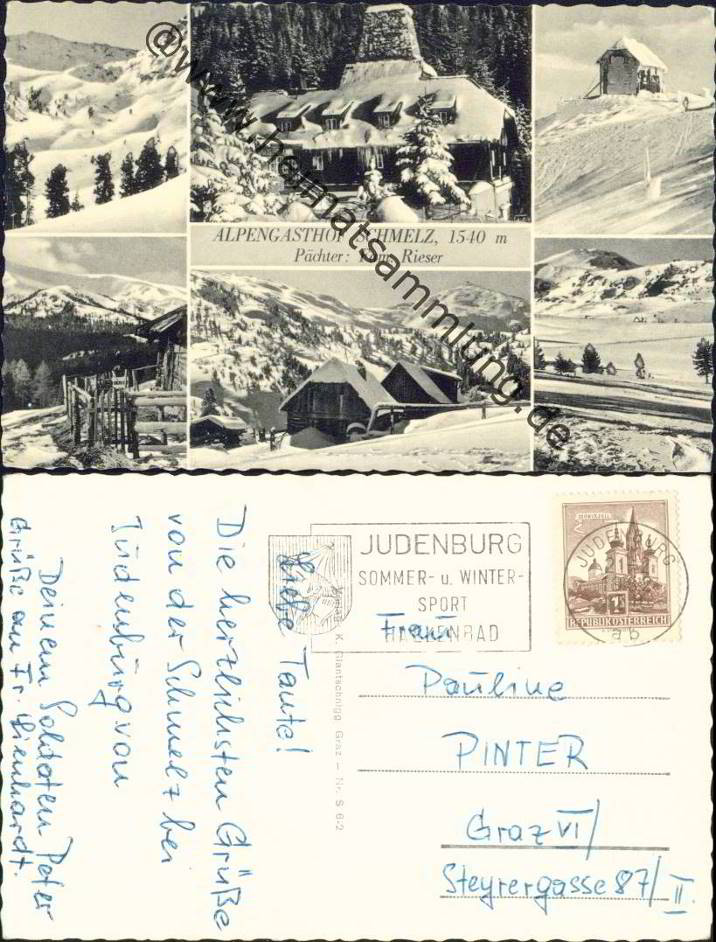 @www.heimatsammlung.de
ALPENGASTHOF SCHMELZ, 1540 m
Pächter: Rieser
Liebe Tante!
Die herzlichsten Grüße
von der Schmelz bei
Judenburg von
Deinem Soldaten Peter
Grüße an Fr. Lienhardt.
K. Glantschnigg Graz — Nr. S 6/2
JUDENBURG
SOMMER- u. WINTER-
SPORT
HALLENBAD
JUDENBURG
a b
MARIAZELL
1S
REPUBLIK ÖSTERREICH
Frau
Pauline
PINTER
Graz VI/
Steyrergasse 87/II.